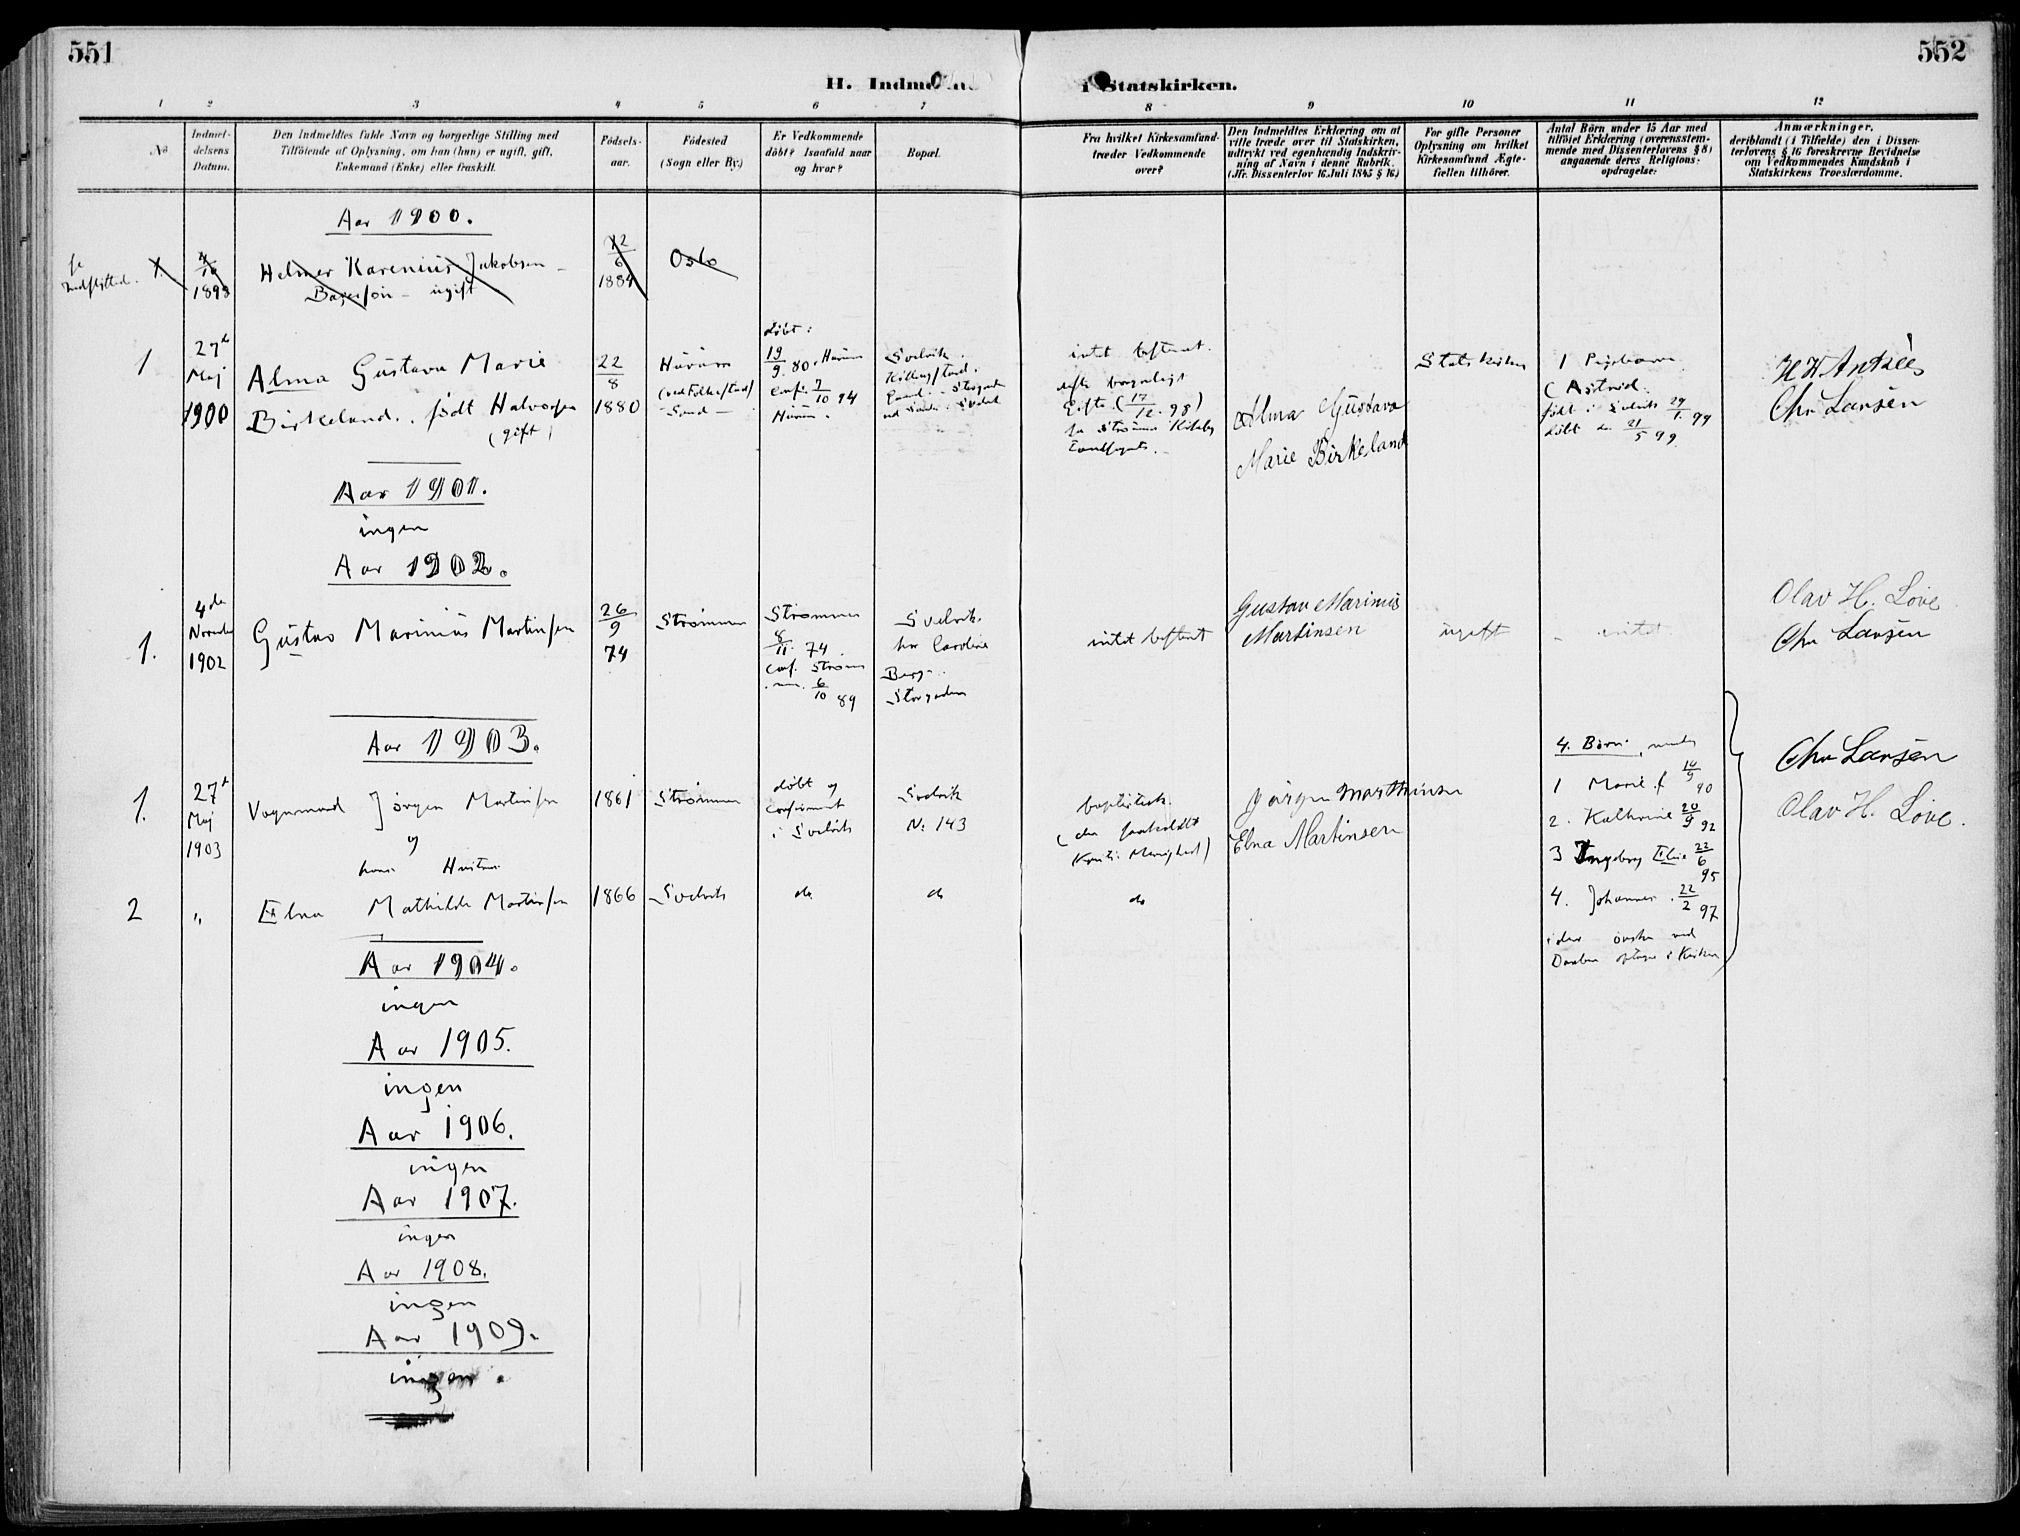 551
552
H. Indme
i Statskirken.
1 2 3 4 5 6 7 8 9 10 11 12
No
Indmel-
delsens
Datum.
Den Indmeldtes fulde Navn og borgerlige Stilling med
Tilföiende af Oplysning, om han (hun) er ugift, gift,
Enkemand (Enke) eller fraskilt.
Födsels-
aar.
Födested
(Sogn eller By.)
Er Vedkommende
döbt? Isaafald naar
og hvor?
Bopæl.
Fra hvilket Kirkesamfund
træder Vedkommende
over?
Den Indmeldtes Erklæring om at
ville træde over til Statskirken,
udtrykt ved egenhændig Indskriv-
ning af Navn i denne Rubrik.
(Jfr. Dissenterlov 16 Juli 1845 § 16.)
For gifte Personer
Oplysning om hvilket
Kirkesamfund Ægte-
fællen tilhörer.
Antal Börn under 15 Aar med
tilföiet Erklæring (overensstem-
mende med Dissenterlovens § 8)
angaaende deres Religions-
opdragelse:
Anmærkninger,
deriblandt (i Tilfælde) den i Dissen-
terlovens § 16 foreskrevne Bevidnelse
om Vedkommendes Kundskab i
Statskirkens Troeslærdomme.
Aar 1900.
se
Indflytted.
1
4/10
1898
Helmer Karenius Jakobsen
Bagersøn - ugift
12/6
1884
Oslo
1
27de
Maj
1900
Alma Gustava Marie
Birkeland. født Halvorsen
(gift)
22/8
1880
Hurum
døbt:
19/9 80. Hurum
Conf. 7/10 94
Hurum.
Svelvik.
intet bestemt.
Gift (17/12 98)
Alma Gustava
Marie Birkeland
Statskirken
1 Pigebarn
(Astrid.
født i Svelvik 29/1 99
døbt 21/5 99
Chr Larsen
Aar 1901.
ingen
Aar 1902.
1.
4de
Novemb
1902
Gustav Marinius Martinsen
26/9
74
Strømmen
Strømmen
8/11 74.
Conf. Strøm
men. 6/10 89
Svelvik.
hos Caroline
Berg.
Storgaden
intet bestemt
Gustav Marinius
Martinsen
ugift
- intet
Olav H. Love
Chr Larsen
Aar 1903.
1.
27de
Maj
1903
Vognmand Jørgen Martinsen
og
hans Hustru
1861
Strømmen
døbt og
confirmert
i Svelvik
Svelvik
N: 143
baptistisk.
Jørgen Marthinsen
Elna Martinsen
4. Børn
1 Marie f 10/9 90
2. Kathrine 20/9 92
3 Ingeborg Elise 22/6 95
4. Johannes. 22/2 97
Chr Larsen
Olav H. Love.
2
"
Elna Mathilde Martinsen
1866
Svelvik
do
do
do
Aar 1904.
ingen
Aar 1905.
ingen
Aar 1906.
ingen
Aar 1907.
ingen
Aar 1908.
ingen
Aar 1909.
ingen